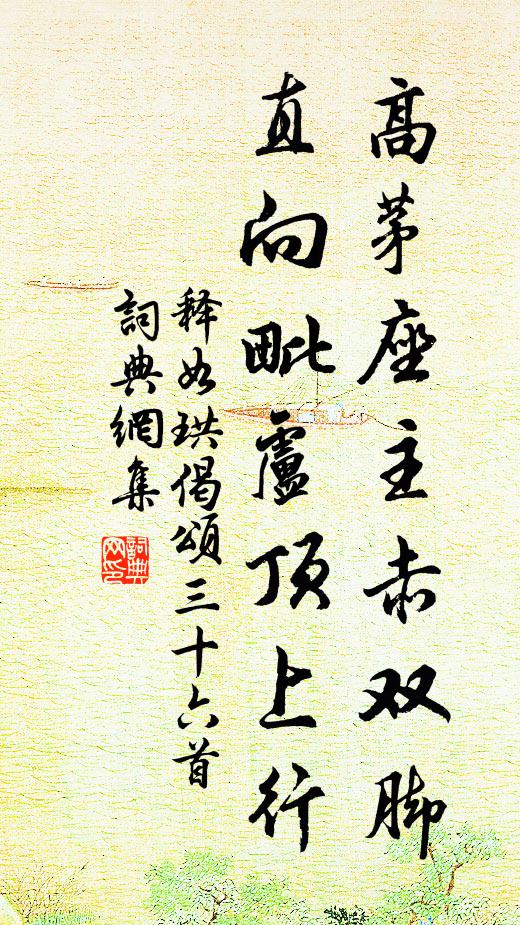 高茅座主赤双脚
直向毗盧顶上行
释如珙偈頌三十六首
詞典網集
詞典网印